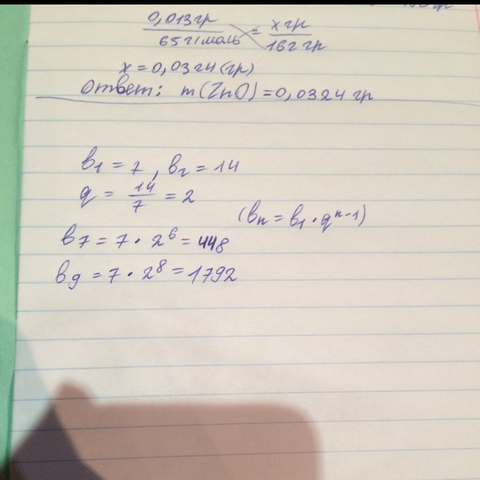 0,013гр / 65 г/моль = x гр / 162 гр
x = 0,0324 (гр)
Ответ: m(ZnO) = 0,0324 гр
b₁ = 7, b₂ = 14
q = 14/7 = 2
(bₙ = b₁ · qⁿ⁻¹)
b₇ = 7 · 2⁶ = 448
b₉ = 7 · 2⁸ = 1792